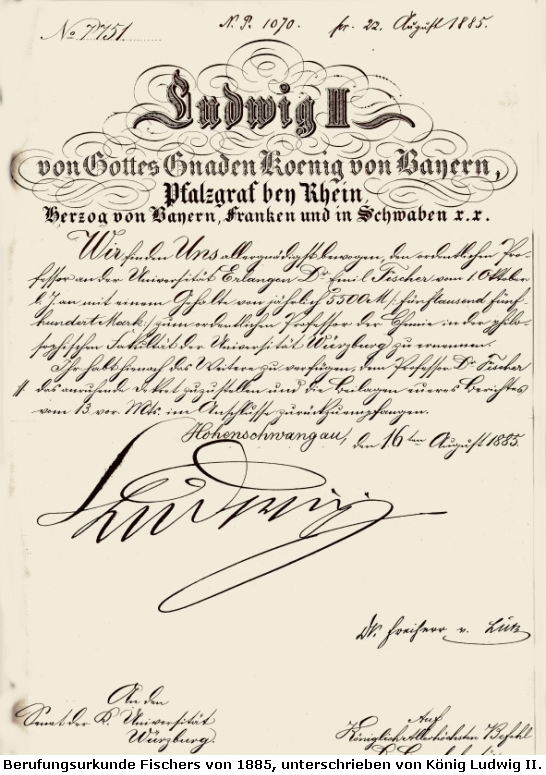 No 7751.
N. P. 1070.  pr. 22. August 1885.
Ludwig II
von Gottes Gnaden Koenig von Bayern,
Pfalzgraf bey Rhein,
Herzog von Bayern, Franken und in Schwaben x.x.
Wir finden Uns allergnädigst bewogen, den ordentlichen Pro-
fessor an der Universität Erlangen Dr. Emil Fischer vom 1. Oktober
l. J. an mit einem Gehalte von jährlich 5500 M /: fünftausend fünf-
hundert Mark :/ zum ordentlichen Professor der Chemie in der philo-
sophischen Fakultät der Universität Würzburg zu ernennen.
Ihr habt hienach das Weitere zu verfügen, dem Professor Dr. Fischer
das anruhende Dekret zuzustellen und die Beilagen eueres Berichtes
vom 13. vor. Mts. im Anschlusse zurückzuempfangen.
Hohenschwangau, den 16ten August 1885.
Ludwig
Dr. Freiherr v. Lutz
An den
Senat der K. Universität
Würzburg.
Auf
Königlich Allerhöchsten Befehl
Berufungsurkunde Fischers von 1885, unterschrieben von König Ludwig II.